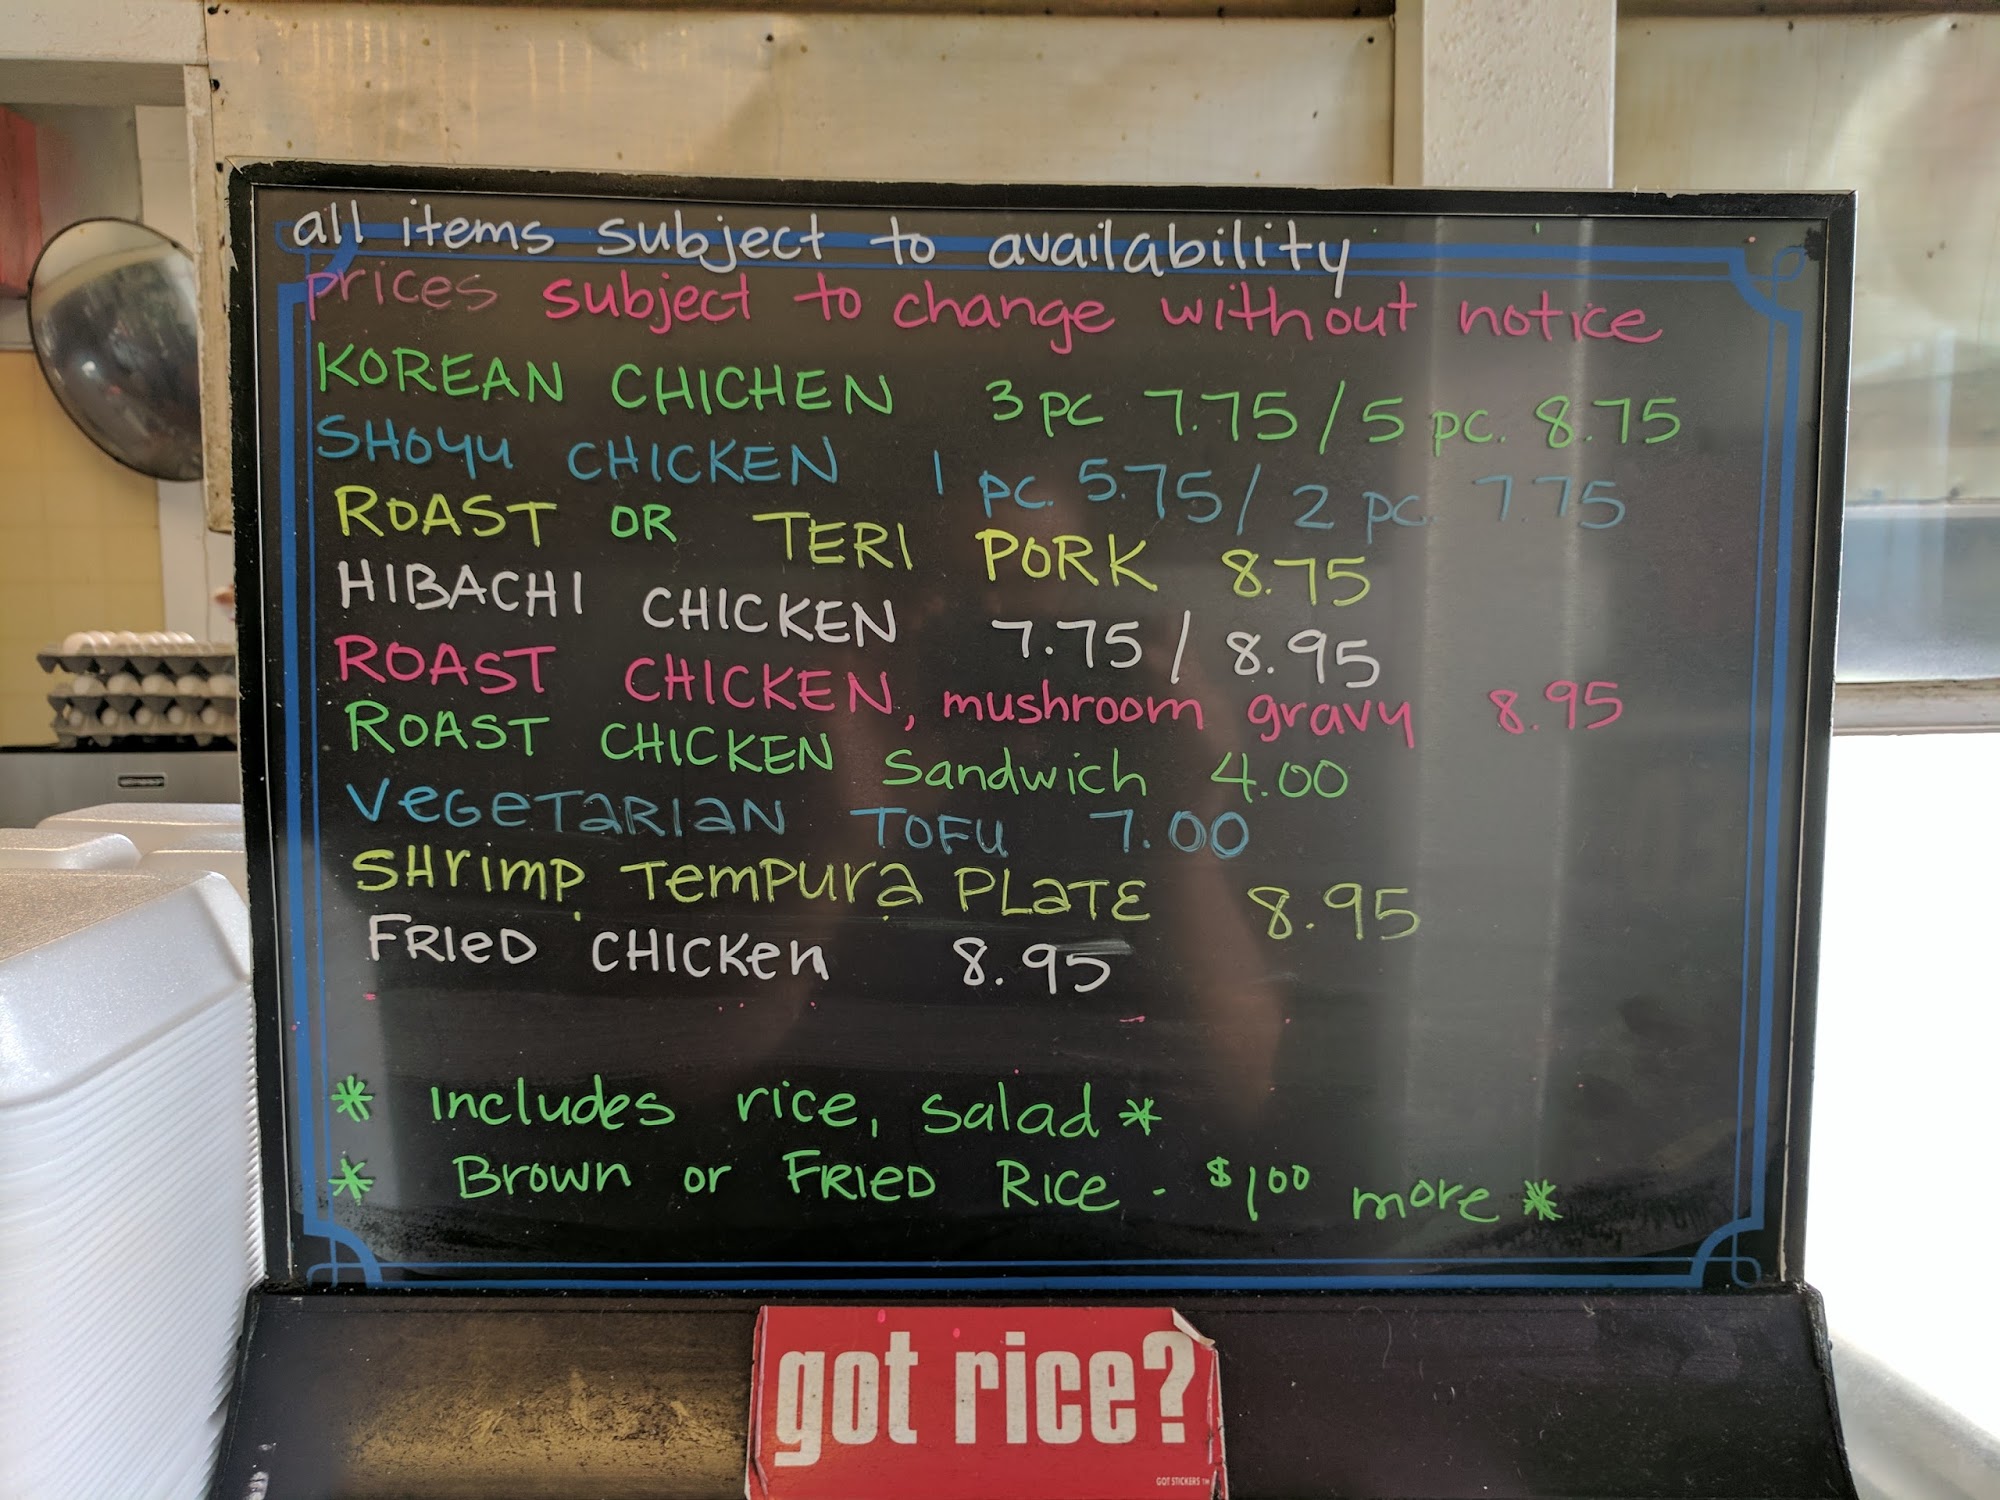 all items subject to availability
prices subject to change without notice
KOREAN CHICHEN 3 pc 7.75 / 5 pc. 8.75
SHOYU CHICKEN 1 pc. 5.75 / 2 pc 7.75
ROAST OR TERI PORK 8.75
HIBACHI CHICKEN 7.75 / 8.95
ROAST CHICKEN, mushroom gravy 8.95
ROAST CHICKEN Sandwich 4.00
VeGeTaRIaN TOFU 7.00
SHrimp Tempura PLaTE 8.95
FRIeD CHICKen 8.95
* Includes rice, salad *
* Brown or FRIED RICe - $1.00 more *
got rice?
GOT STICKERS ™